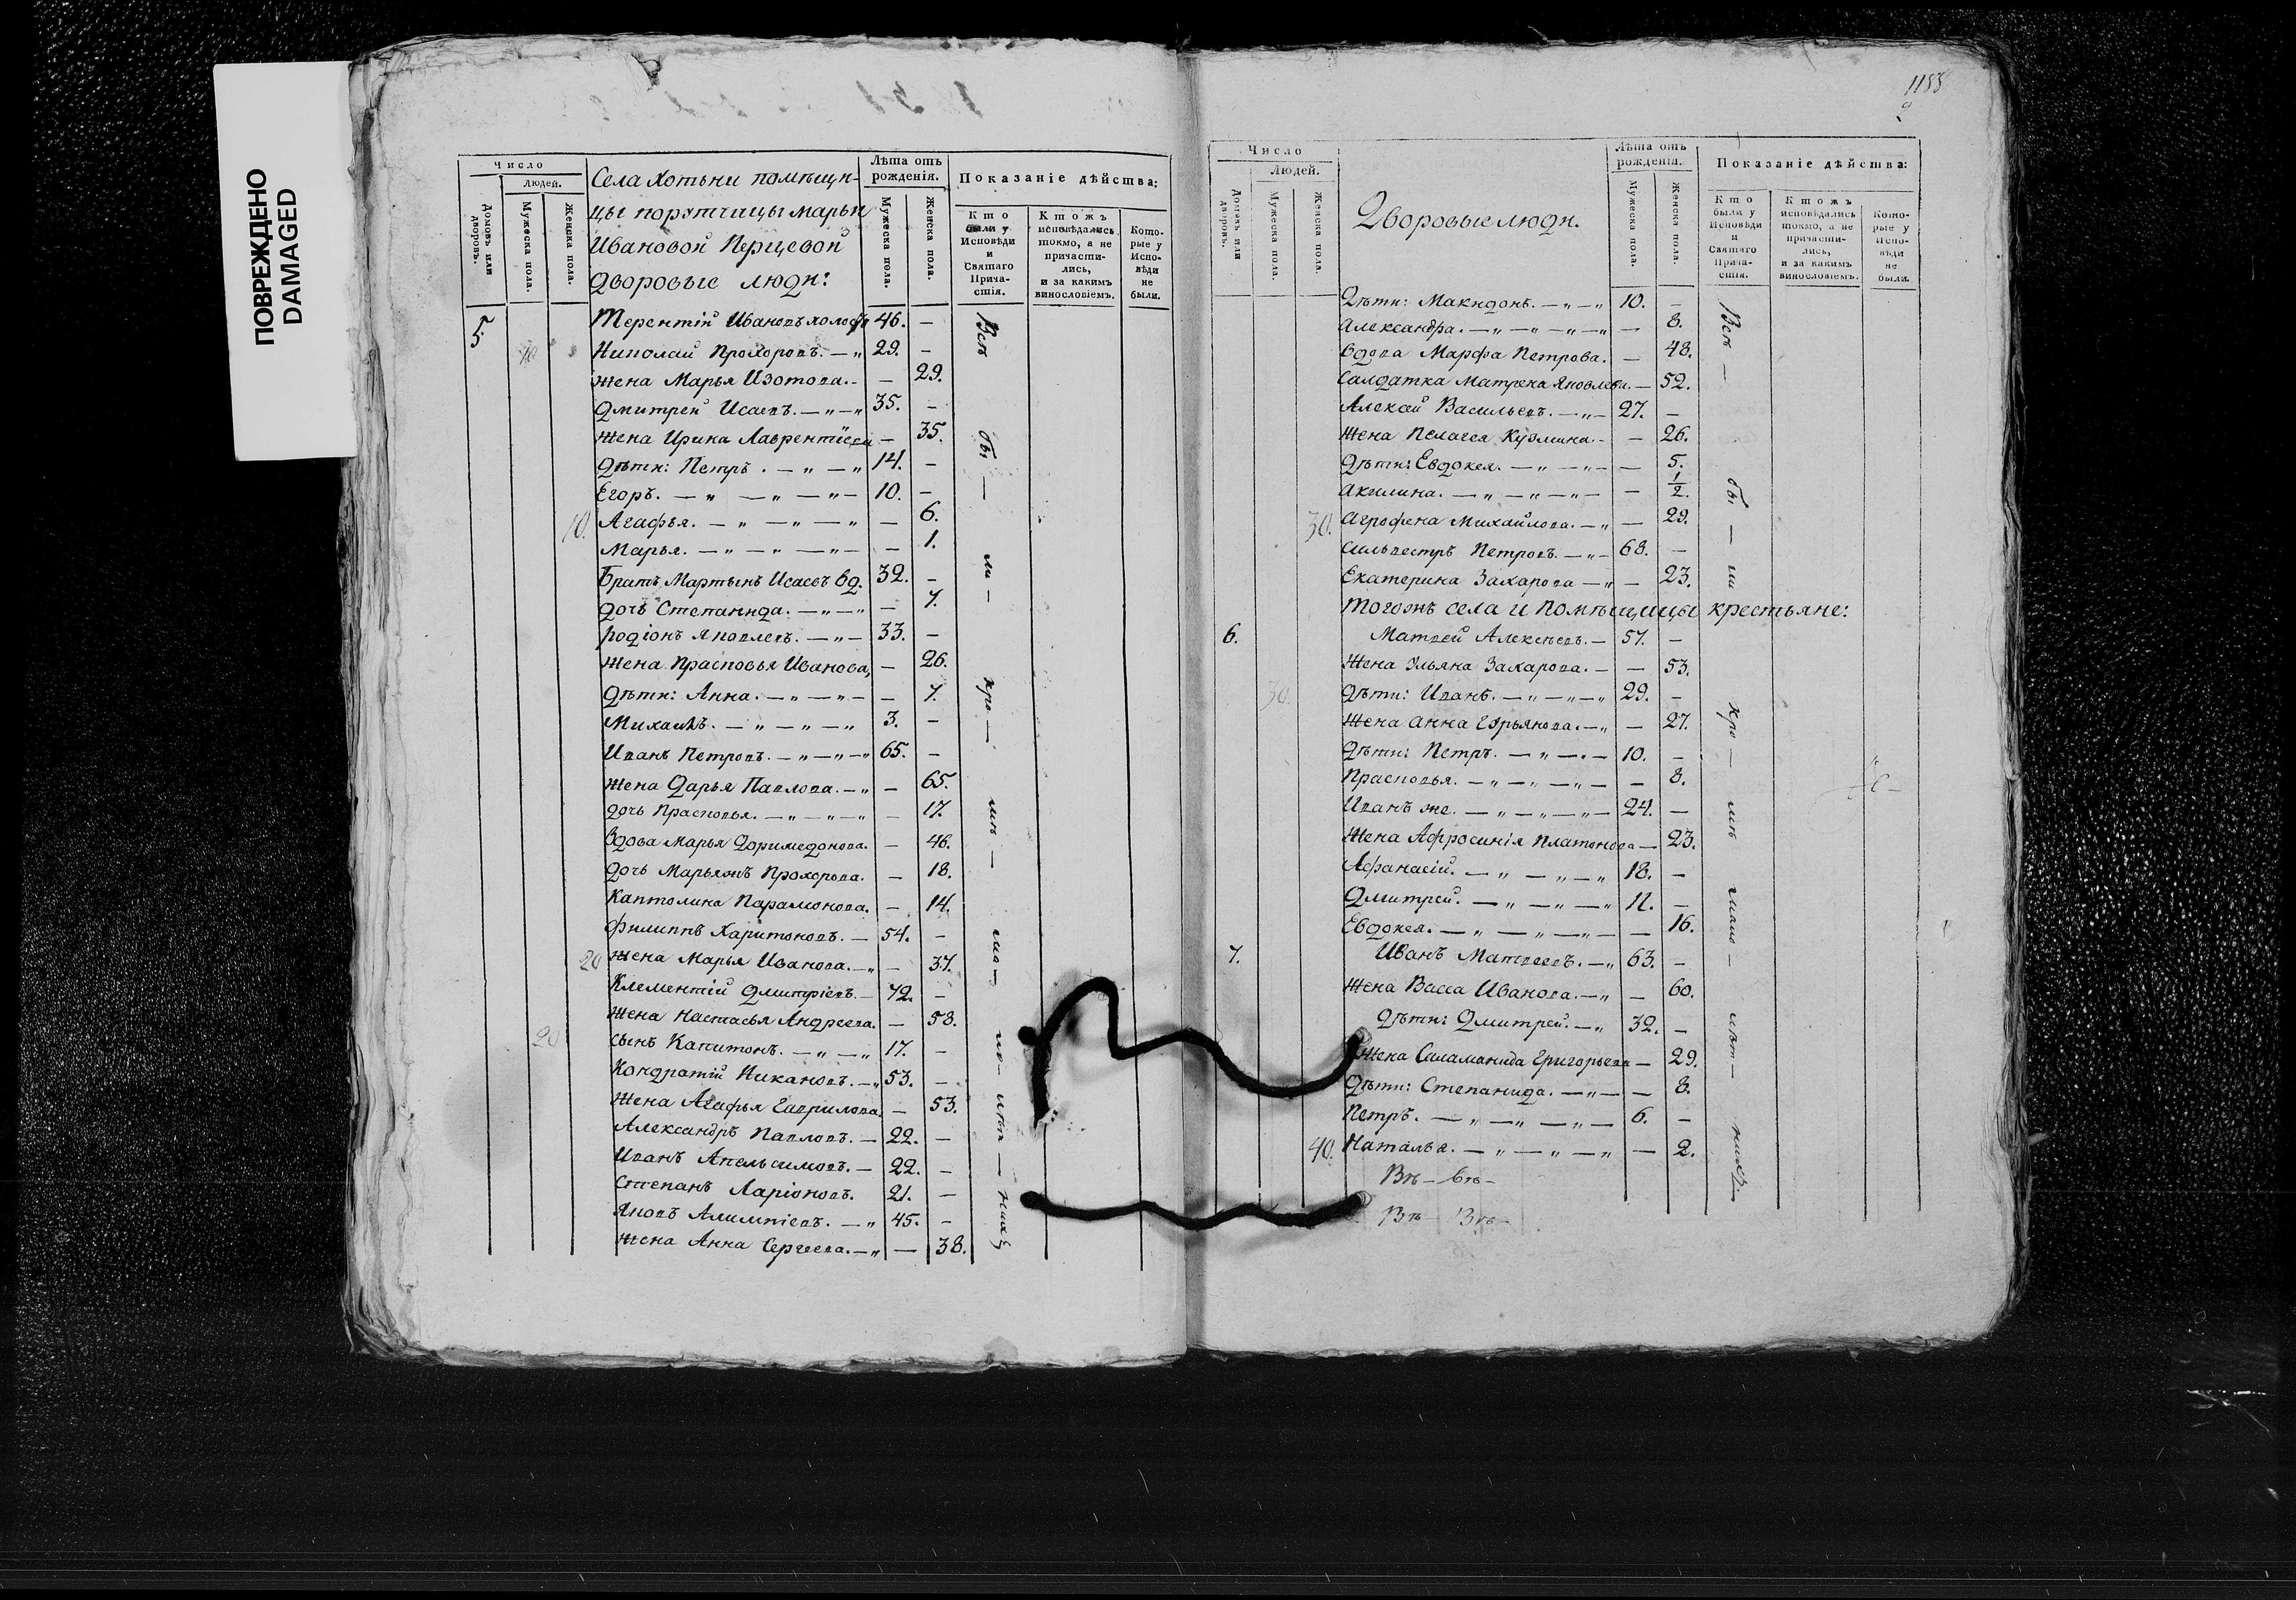 ПОВРЕЖДЕНО
DAMAGED
Число
Людей.
Домовъ или дворовъ.
Мужеска пола.
Женска пола.
Села Хотьни помѣщи-
цы порутчицы Марьи
Ивановой Перцевой
дворовые люди:
Лѣта отъ рожденія.
Мужеска пола.
Женска пола.
Показаніе дѣйства:
Кто были у Исповѣди и Святаго Прича-стія.
Ктожъ исповѣдались токмо, а не причасти-лись, и за какимъ винословіемъ.
Кото-рые у Испо-вѣди не были.
5. Терентій Ивановъ холостъ 46. —
10 Николай Прохоровъ. — „ 29. —
жена Марья Изотова. - — 29.
Дмитрей Исаевъ. — „ — „ 35. —
жена Ирина Лаврентіева — 35.
дѣти: Петръ. — „ — „ 14. —
Егоръ. — „ — „ — „ — 10. —
10. Агафья. — „ — „ — „ — 6.
Марья. — „ — „ — „ — — 1.
Братъ Мартынъ Исаевъ вд. 32. —
дочь Степанида. — „ — „ — 7.
Родіонъ Яковлевъ. — „ — 33. —
жена Прасковья Иванова, — 26.
дѣти: Анна. — „ — „ — — 7.
Михаилъ. — „ — „ — „ 3. —
Иванъ Петровъ. — „ — „ — „ 65. —
жена Дарья Павлова. — „ — 65.
дочь Прасковья. — „ — „ — „ — 17.
Вдова Марья Доримедонова. — 46.
дочь Марьянъ Прохорова. — 18.
Каптолина Парамонова. — 14.
Филиппъ Харитоновъ. — 54. —
20 жена Марья Иванова. — „ — 37.
Клементій Дмитріевъ. — 72. —
жена Настасья Андреева. — 58.
20 сынъ Капитонъ. — „ — „ 17. —
Кондратій Никановъ. — „ 53. —
жена Агафья Гаврилова. — 53.
Александръ Павловъ. — 22. —
Иванъ Анельсимовъ. — 22. —
Степанъ Ларіоновъ. 21. —
Яковъ Алимпіевъ. — „ 45. —
жена Анна Сергеева. — „ — 38.
Всѣ бы — ли — кро — мѣ — ма —
1188
Число
Людей.
Домовъ или дворовъ.
Мужеска пола.
Женска пола.
Дворовые люди.
Лѣта отъ рожденія.
Мужеска пола.
Женска пола.
Показаніе дѣйства:
Кто были у Исповѣди и Святаго Прича-стія.
Ктожъ исповѣдались токмо, а не причасти-лись, и за какимъ винословіемъ.
Кото-рые у Испо-вѣди не были.
Дѣти: Макидонъ. — „ — „ 10. —
Александра. — „ — „ — „ — „ — 8.
вдова Марфа Петрова. — 48.
Салдатка Матрена Яковлева. — 52.
Алексѣй Васильевъ. — „ — 27. —
жена Пелагея Кузмина. - — 26.
Дѣти: Евдокея. — „ — „ — — 5.
Акилина. — „ — „ — „ — — 1/2.
30. Агрофена Михайлова. — „ — 29.
Сильвестръ Петровъ. — „ — 68. —
Екатерина Захарова — „ — 23.
Тогожъ села и помѣщицы крестьяне:
6. Матвей Алексѣевъ. — 57. —
жена Ульяна Захарова. — — 53.
30. Дѣти: Иванъ. — „ — „ — „ 29. —
жена Анна Гурьянова. — „ — 27.
Дѣти: Петръ. — „ — „ — 10. —
Прасковья. — „ — „ — „ — — 8.
Иванъ же. — „ — „ — „ — 24. —
жена Афросинія Платонова — 23.
Афанасій. — „ — „ — „ 18. —
Дмитрей. — „ — „ — „ 12. —
Евдокея. — „ — „ — „ — — 16.
7. Иванъ Матвеевъ. — „ 63. —
жена Васса Иванова. — „ — 60.
Дѣти: Дмитрей. — „ 32. —
жена Саламанида Григорьева — 29.
Дѣти: Степанида. — „ — — 8.
Петръ. — „ — „ — „ — 6. —
40. Наталья. — „ — „ — „ — 2.
Всѣ — бы — ли кро — мѣ мало — лѣт — нихъ